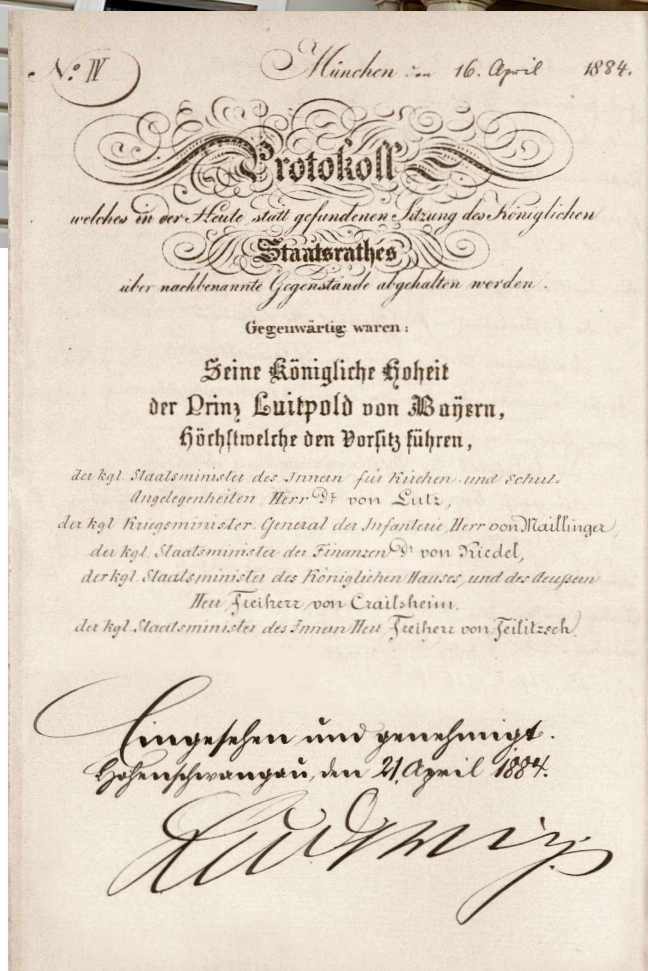 No: IV München den 16. April 1884.
Protokoll
welches in der Heute statt gefundenen Sitzung des Königlichen
Staatsrathes
über nachbenannte Gegenstände abgehalten worden.
Gegenwärtig waren:
Seine Königliche Hoheit
der Prinz Luitpold von Bayern,
Höchstwelche den Vorsitz führen,
der kgl. Staatsminister des Innern für Kirchen und Schul-
Angelegenheiten, Herr Dr. von Lutz,
der kgl. Kriegsminister General der Infanterie, Herr von Maillinger,
der kgl. Staatsminister der Finanzen Dr. von Riedel,
der kgl. Staatsminister des Königlichen Hauses, und des Aeußern
Herr Freiherr von Crailsheim,
der kgl. Staatsminister des Innern Herr Freiherr von Feilitzsch.
Eingesehen und genehmigt.
Hohenschwangau, den 21 April 1884.
Ludwig.